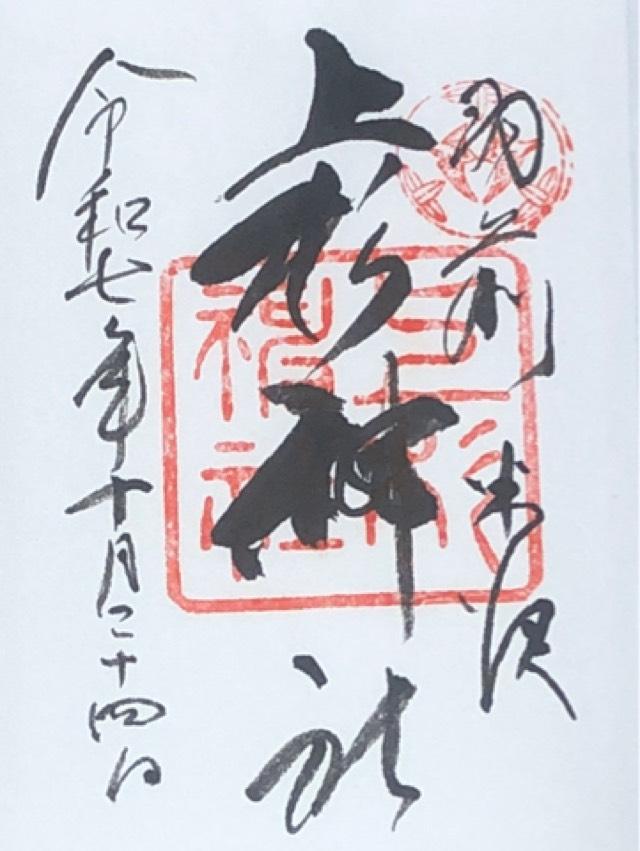 羽前米沢
上杉神社
上杉神社
令和七年十月二十四日